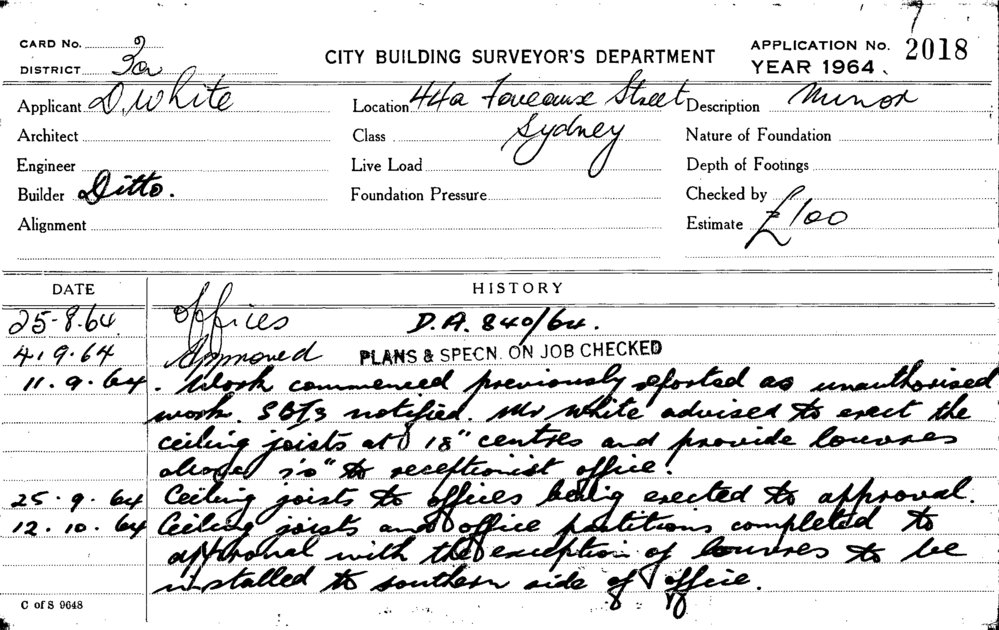 CARD No. 3
DISTRICT 3a
CITY BUILDING SURVEYOR'S DEPARTMENT
APPLICATION No. 2018
YEAR 1964.
Applicant D. White
Location 44a Foveaux Street
Description Minor
Architect
Class Sydney
Nature of Foundation
Engineer
Live Load
Depth of Footings
Builder Ditto.
Foundation Pressure
Checked by
Alignment
Estimate £100
DATE HISTORY
25-8.64 Offices D.A. 840/64.
4.9.64 Approved PLANS & SPECN. ON JOB CHECKED
11.9.64. Work commenced previously reported as unauthorised
work. notified. Mr White advised to erect the
ceiling joists at 18" centres and provide louvres
above to receptionist office.
25.9.64 Ceiling joists to offices being erected to approval.
12.10.64 Ceiling joists and office partitions completed to
approval with the exception of louvres to be
installed to southern side of office.
C of S 9648